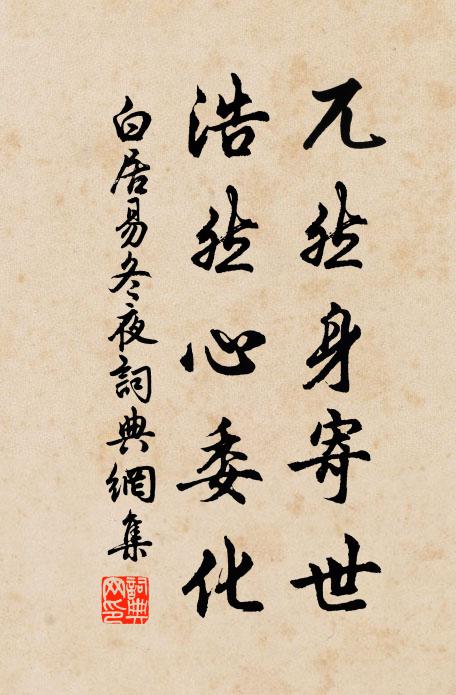 兀然身寄世
浩然心委化
白居易冬夜詞典網集
詞典网印